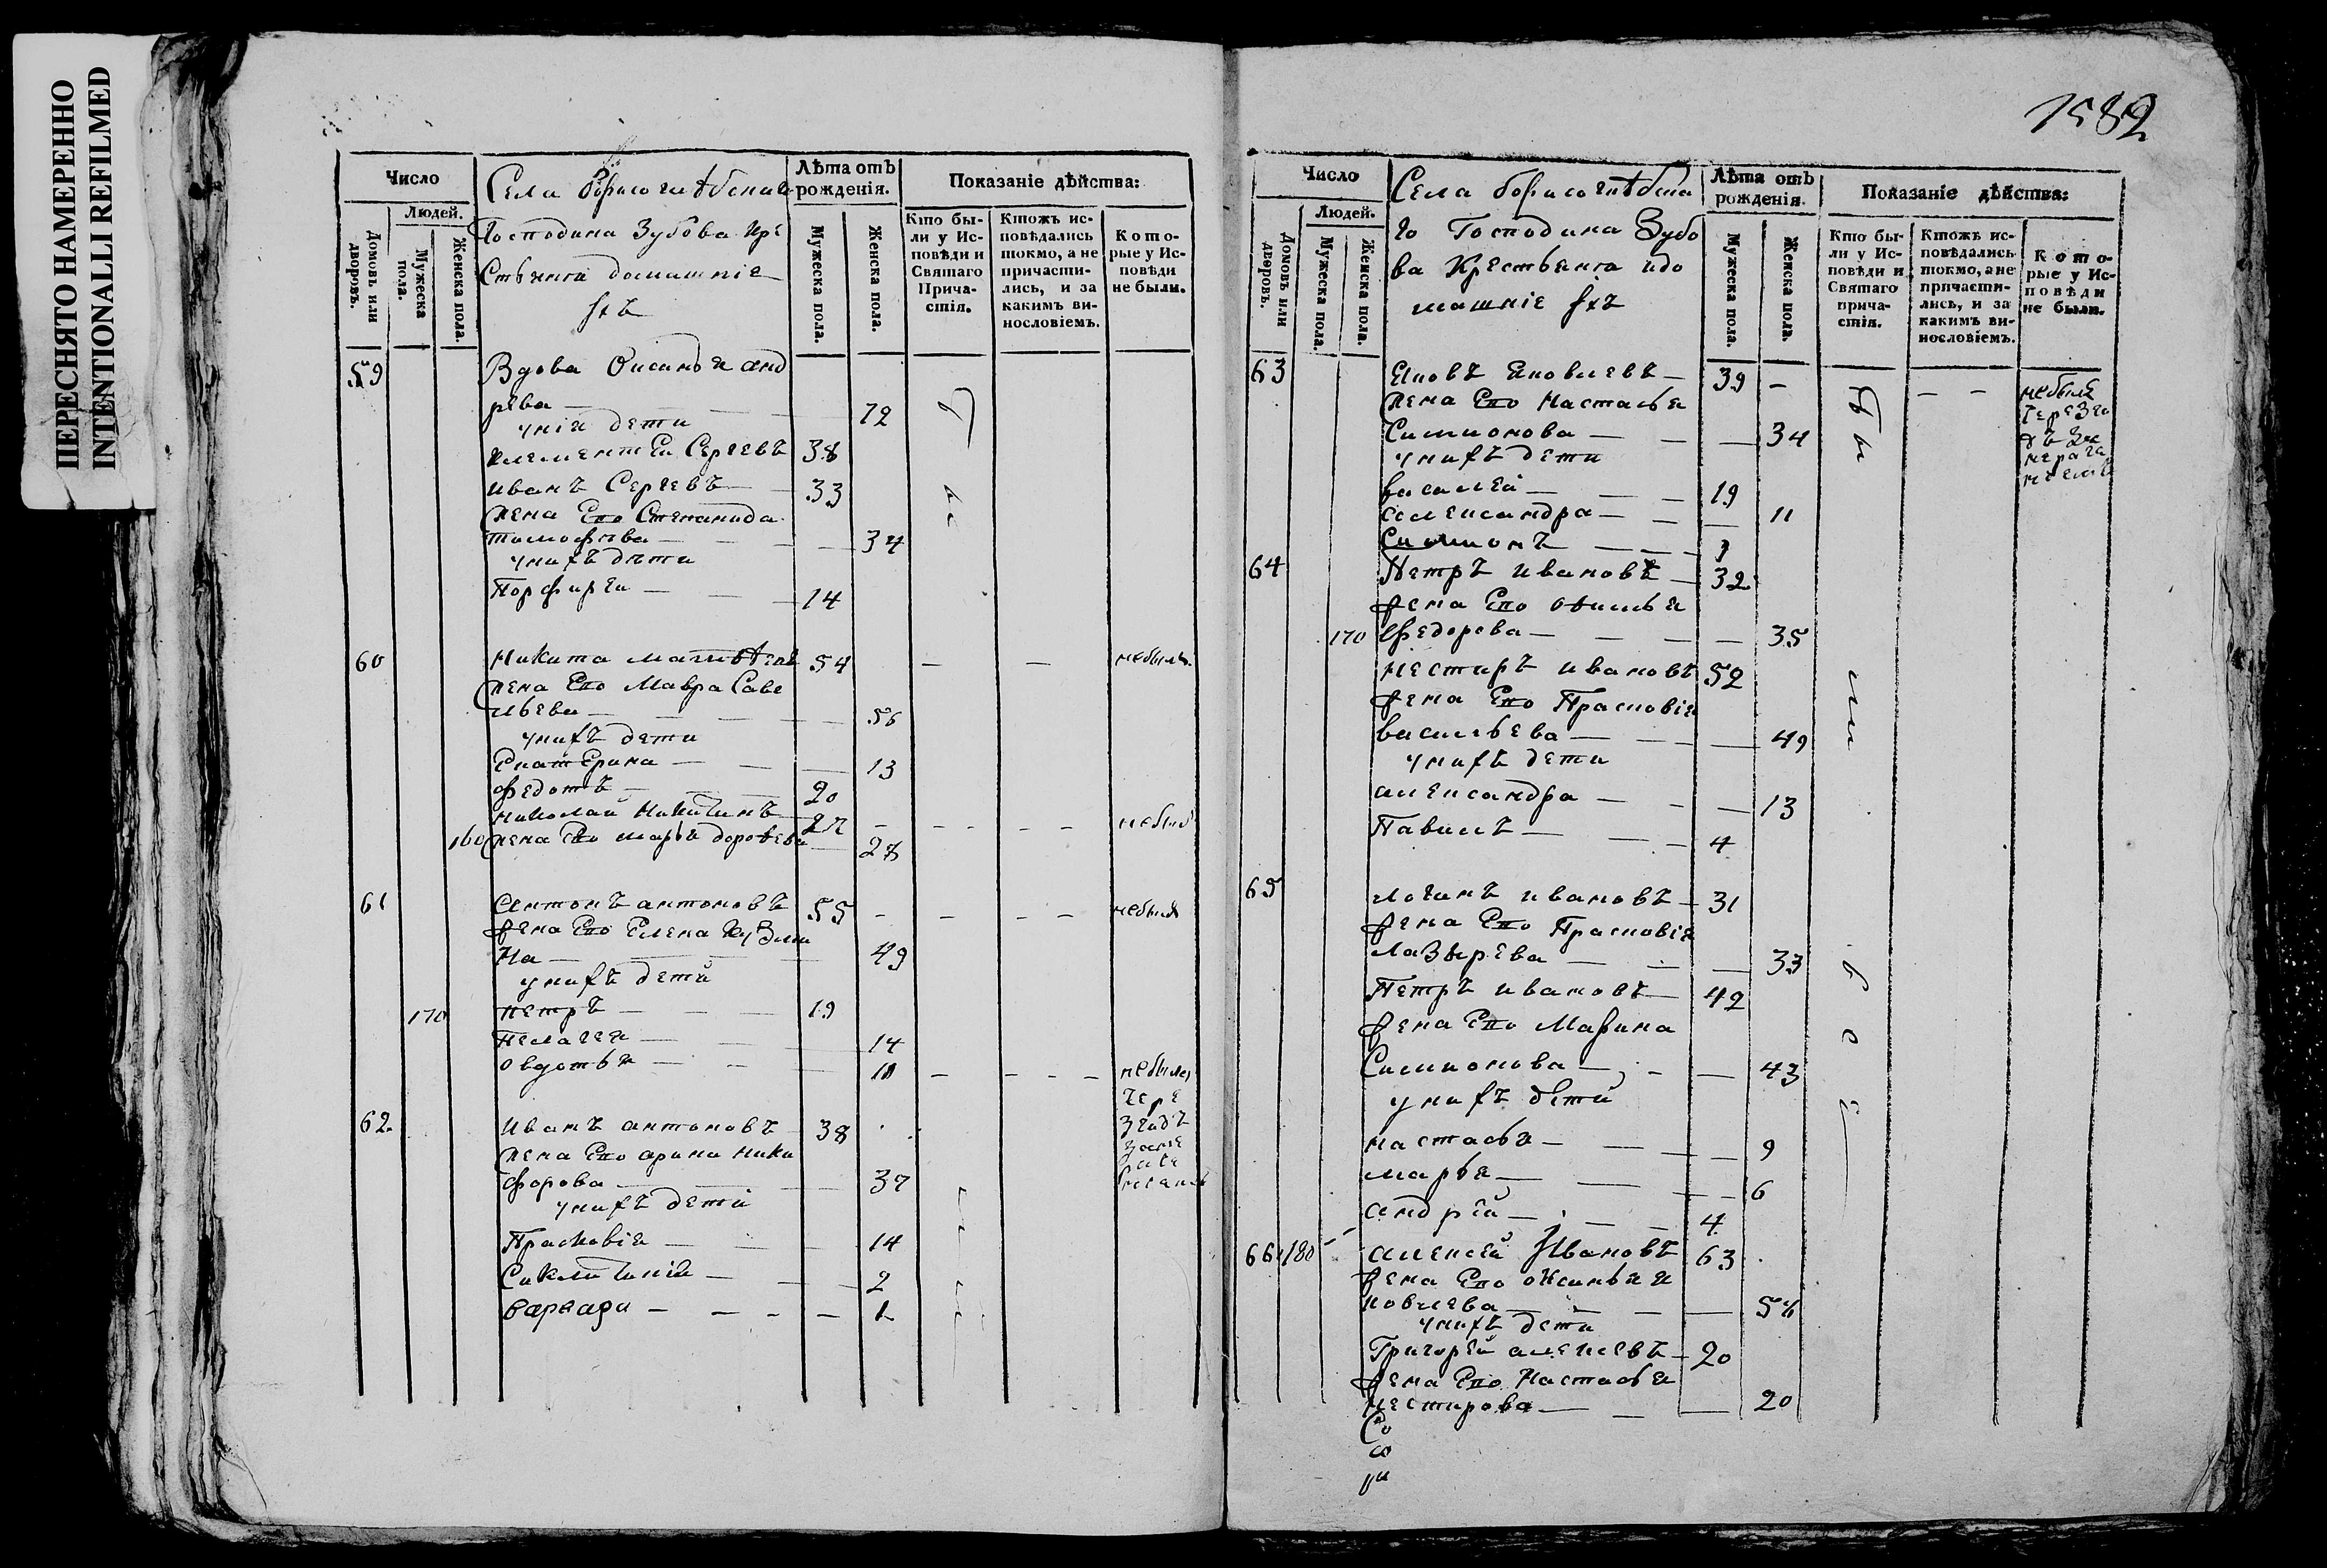 ПЕРЕСНЯТО НАМЕРЕННО
INTENTIONALLI REFILMED
Число
Людей.
Домовъ или дворовъ.
Мужеска пола.
Женска пола.
Села Борисоглѣбскаго
Господина Зубова кре
стьяня домашніе
ихъ
Лѣта отъ рожденія.
Мужеска пола.
Женска пола.
Показаніе дѣйства:
Кто бы-
ли у Ис-
повѣди и
Святаго
Прича-
стія.
Ктожъ ис-
повѣдались
токмо, а не
причасти-
лись, и за
какимъ ви-
нословіемъ.
Кото-
рые у Ис-
повѣди
не были.
59 Вдова Оксинья анд
рева 72
унія дети
Клементей Сергевъ 38
иванъ Сергевъ 33
жена Его Степанида
тимофева 34
унихъ дѣти
Порфирей 14
60 Никита матвѣевъ 54 небылъ
жена Его Мавра Саве
льева 56
унихъ дети
Екатерина 13
федотъ 20
николай Никитинъ 27 небылъ
160 жена Его марья дорофева 28
61 антонъ антоновъ 55 небылъ
жена Его Елена Кузми
на 49
унихъ дети
170 петръ 19
Пелагея 14
овдотья 11 небыли
62 Иванъ антоновъ 38
жена Его арина ники
форова 37
унихъ дети
Прасковія 14
2
варвара 1
1582
Число
Людей.
Домовъ или дворовъ.
Мужеска пола.
Женска пола.
Села борисоглѣбска
го Господина Зубо
ва Крестьяня идо
машніе ихъ
Лѣта отъ рожденія.
Мужеска пола.
Женска пола.
Показаніе дѣйства:
Кто бы-
ли у Ис-
повѣди и
Святаго
прича-
стія.
Ктожъ ис-
повѣдались
токмо, а не
причасти-
лись, и за
какимъ ви-
нословіемъ.
Кото-
рые у Ис-
повѣди
не были.
63 Яковъ Яковлевъ 39
жена Его Настасья
Симионова 34
унихъ дети
василей 19
александра 11
Симионъ 3
64 Петръ ивановъ 32
жена Его офимья
170 федорова 35
нестиръ ивановъ 52
жена Его Прасковія
васильева 49
унихъ дети
александра 13
Павилъ 4
65 логинъ ивановъ 31
жена Его Прасковія
лазырева 33
Петръ ивановъ 42
жена Его Марина
Симионова 43
унихъ дѣти
настасья 9
марья 6
андрей 4
66 180 алексей Ивановъ 63
жена Его оксинья я
ковлева 58
унихъ дети
Григорей алексевъ 20
жена Его Настасья
нестирова 20